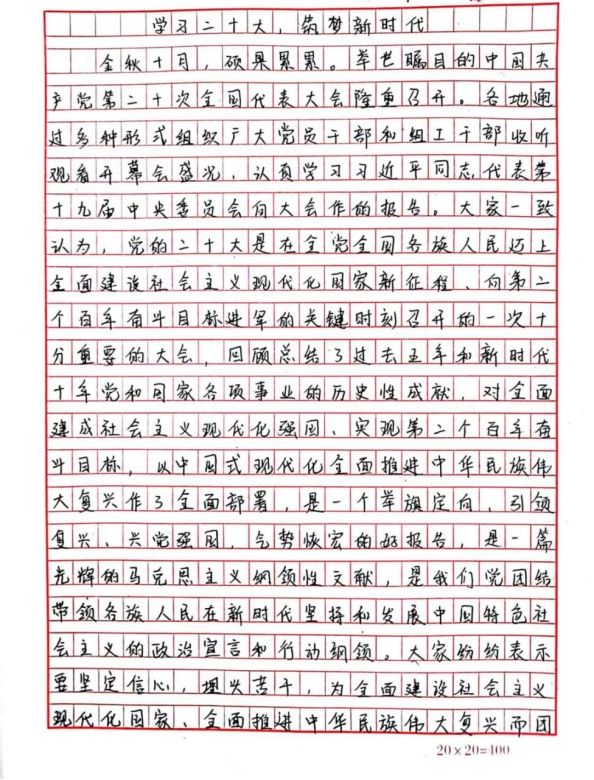 学习二十大，筑梦新时代
金秋十月，硕果累累。举世瞩目的中国共
产党第二十次全国代表大会隆重召开。各地通
过多种形式组织广大党员干部和组工干部收听
观看开幕会盛况，认真学习习近平同志代表第
十九届中央委员会向大会作的报告。大家一致
认为，党的二十大是在全党全国各族人民迈上
全面建设社会主义现代化国家新征程、向第二
个百年奋斗目标进军的关键时刻召开的一次十
分重要的大会，回顾总结了过去五年和新时代
十年党和国家各项事业的历史性成就，对全面
建成社会主义现代化强国、实现第二个百年奋
斗目标，以中国式现代化全面推进中华民族伟
大复兴作了全面部署，是一个举旗定向、引领
复兴、兴党强国、气势恢宏的好报告，是一篇
光辉的马克思主义纲领性文献，是我们党团结
带领各族人民在新时代坚持和发展中国特色社
会主义的政治宣言和行动纲领。大家纷纷表示
要坚定信心，埋头苦干，为全面建设社会主义
现代化国家、全面推进中华民族伟大复兴而团
20×20=400